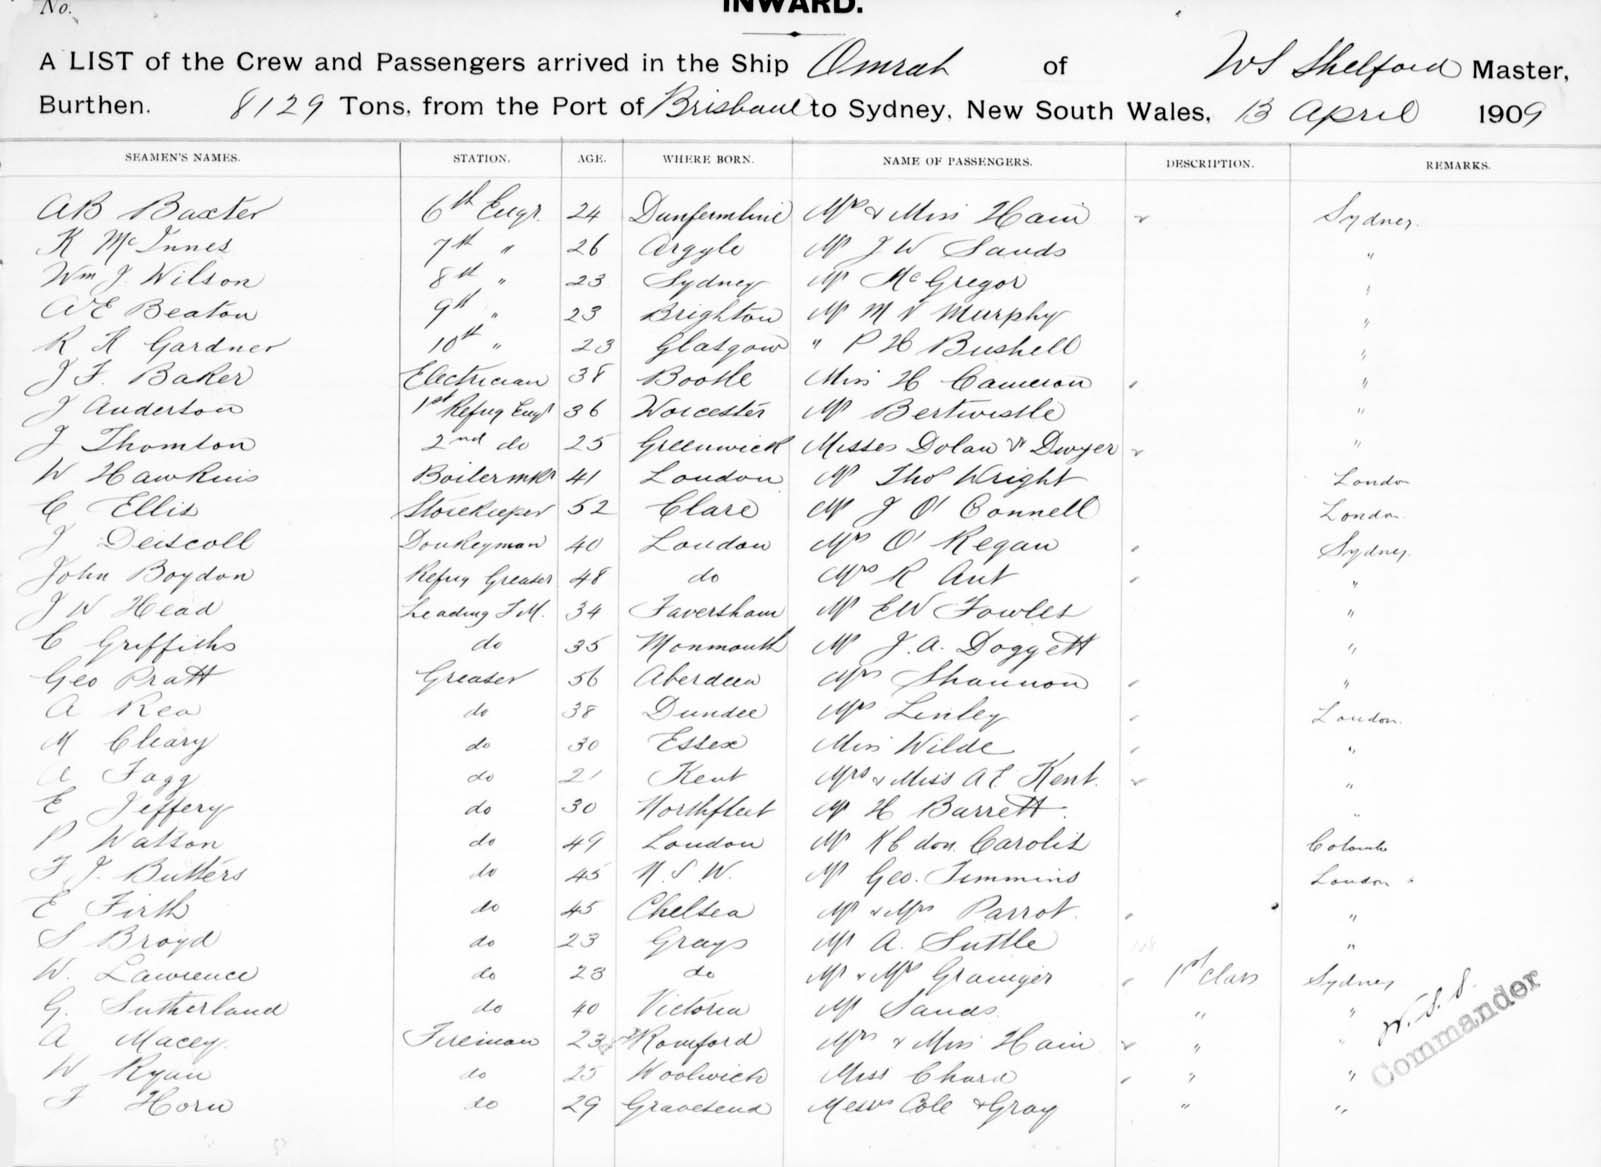 No.
INWARD.
A LIST of the Crew and Passengers arrived in the Ship Omrah of WS Shelford Master,
Burthen. 8129 Tons, from the Port of Brisbane to Sydney, New South Wales, 13 April 1909
SEAMEN'S NAMES. STATION. AGE. WHERE BORN. NAME OF PASSENGERS. DESCRIPTION. REMARKS.
AB Baxter 6th Engr. 24 Dunfermline Mrs & Miss Hain Sydney.
K McInnes 7th " 26 Argyle Mr J W Sands "
Wm J. Wilson 8th " 23 Sydney Mr McGregor "
AE Beaton 9th " 23 Brighton Mr M N Murphy "
R K Gardner 10th " 23 Glasgow " P H Bushell "
J F. Baker Electrician 38 Bootle Miss H Cameron "
J Anderson 1st Refrg Engr 36 Worcester Mr Bertwistle "
J Thomson 2nd do 25 Greenwich Misses Dolan & Dwyer "
W Hawkins Boilermkr 41 London Mr Thos Wright London
C Ellis Storekeeper 52 Clare Mr J O'Connell London
J Deiscoll Donkeyman 40 London Mrs O'Regan Sydney.
John Boydon Refrg Greaser 48 do Mrs R Ant "
J W Head Leading F.M. 34 Faversham Mr EW Fowles "
C Griffiths do 35 Monmouth Mr J. A. Doggett "
Geo Pratt Greaser 56 Aberdeen Mrs Shannon "
A Rea do 38 Dundee Mrs Linley London.
M Cleary do 30 Essex Miss Wilde "
A Fagg do 21 Kent Mrs & Miss A E Kent. "
E Jeffery do 30 Northfleet Mr H Barrett. "
P Watson do 49 London Mr K C don Carolis Colombo
F J. Butters do 45 N. S. W. Mr Geo. Timmins London
E Firth do 45 Chelsea Mr & Mrs Parrot. "
S Broyd do 23 Grays Mr A. Suttle "
W. Lawrence do 23 do Mr & Mrs Grainger 1st Class Sydney
G. Sutherland do 40 Victoria Mr Sands. " "
A Macey. Fireman 23 Romford Mrs & Miss Hain " " W.S.S.
W Ryan do 25 Woolwich Miss Chard " " Commander
F Horn do 29 Gravesend Messrs Cole & Gray " "